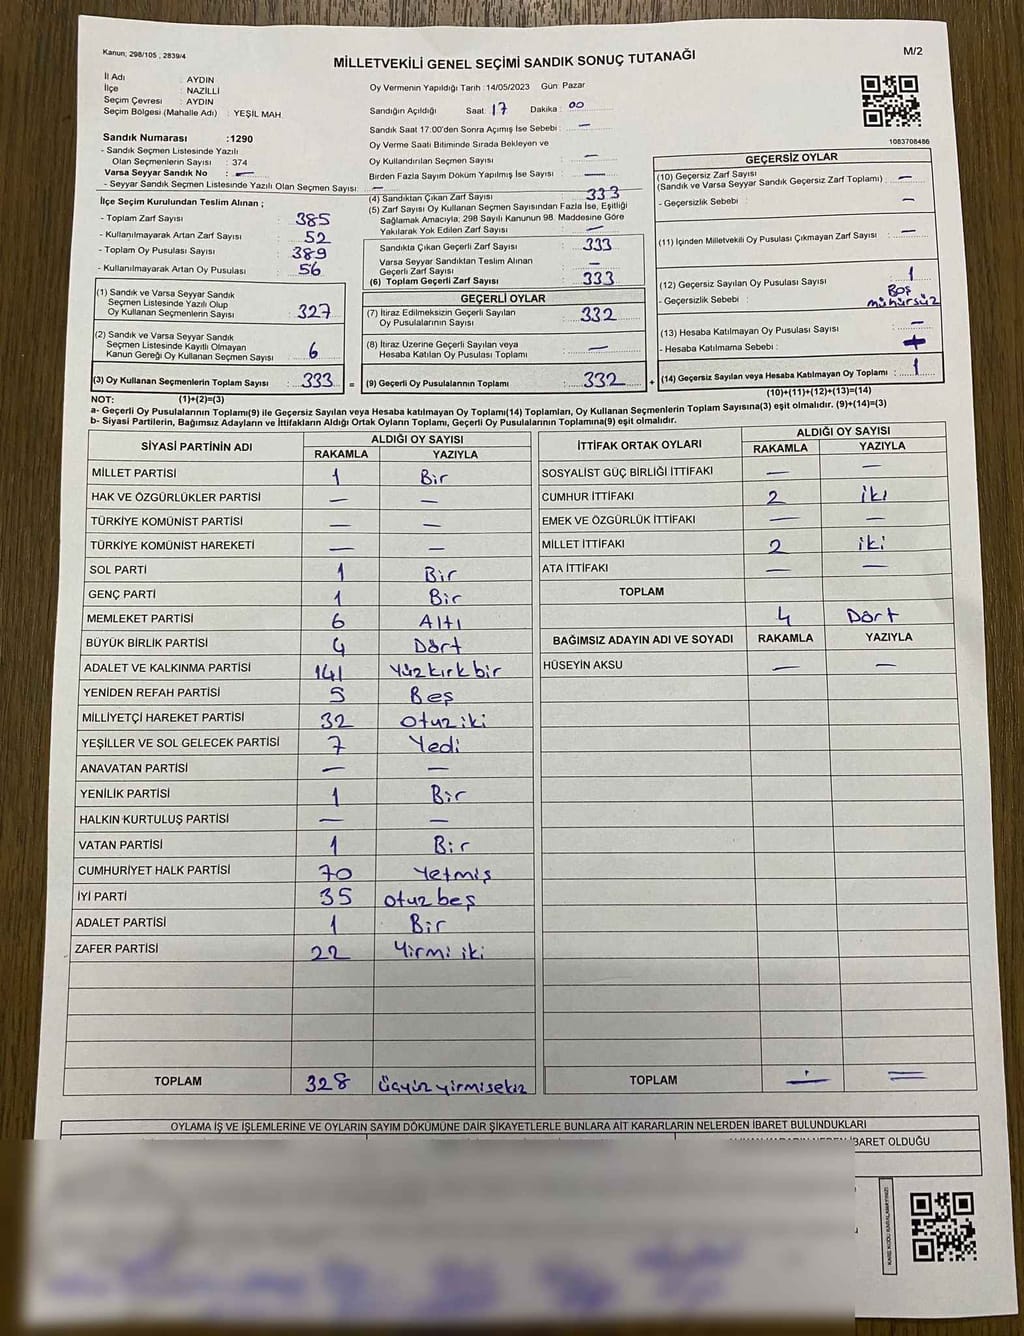 Kanun; 298/105 , 2839/4
MİLLETVEKİLİ GENEL SEÇİMİ SANDIK SONUÇ TUTANAĞI
M/2
İl Adı : AYDIN
İlçe : NAZİLLİ
Seçim Çevresi : AYDIN
Seçim Bölgesi (Mahalle Adı) : YEŞİL MAH.
Sandık Numarası :1290
- Sandık Seçmen Listesinde Yazılı
Olan Seçmenlerin Sayısı : 374
Varsa Seyyar Sandık No : —
- Seyyar Sandık Seçmen Listesinde Yazılı Olan Seçmen Sayısı: —
İlçe Seçim Kurulundan Teslim Alınan ;
- Toplam Zarf Sayısı : 385
- Kullanılmayarak Artan Zarf Sayısı : 52
- Toplam Oy Pusulası Sayısı : 389
- Kullanılmayarak Artan Oy Pusulası : 56
(1) Sandık ve Varsa Seyyar Sandık
Seçmen Listesinde Yazılı Olup
Oy Kullanan Seçmenlerin Sayısı : 327
(2) Sandık ve Varsa Seyyar Sandık
Seçmen Listesinde Kayıtlı Olmayan
Kanun Gereği Oy Kullanan Seçmen Sayısı : 6
(3) Oy Kullanan Seçmenlerin Toplam Sayısı : 333 =
Oy Vermenin Yapıldığı Tarih :14/05/2023 Gün: Pazar
Sandığın Açıldığı Saat: 17 Dakika : 00
Sandık Saat 17:00'den Sonra Açımış İse Sebebi : —
Oy Verme Saati Bitiminde Sırada Bekleyen ve
Oy Kullandırılan Seçmen Sayısı : —
Birden Fazla Sayım Döküm Yapılmış İse Sayısı : —
(4) Sandıktan Çıkan Zarf Sayısı : 333
(5) Zarf Sayısı Oy Kullanan Seçmen Sayısından Fazla İse, Eşitliği
Sağlamak Amacıyla; 298 Sayılı Kanunun 98. Maddesine Göre
Yakılarak Yok Edilen Zarf Sayısı : —
Sandıkta Çıkan Geçerli Zarf Sayısı : 333
Varsa Seyyar Sandıktan Teslim Alınan
Geçerli Zarf Sayısı : —
(6) Toplam Geçerli Zarf Sayısı : 333
GEÇERLİ OYLAR
(7) İtiraz Edilmeksizin Geçerli Sayılan
Oy Pusulalarının Sayısı : 332
(8) İtiraz Üzerine Geçerli Sayılan veya
Hesaba Katılan Oy Pusulası Toplamı : —
(9) Geçerli Oy Pusulalarının Toplamı : 332 +
1083708486
GEÇERSİZ OYLAR
(10) Geçersiz Zarf Sayısı
(Sandık ve Varsa Seyyar Sandık Geçersiz Zarf Toplamı) : —
- Geçersizlik Sebebi : —
(11) İçinden Milletvekili Oy Pusulası Çıkmayan Zarf Sayısı : —
(12) Geçersiz Sayılan Oy Pusulası Sayısı : 1
- Geçersizlik Sebebi : Boş
mühürsüz
(13) Hesaba Katılmayan Oy Pusulası Sayısı : —
- Hesaba Katılmama Sebebi :
(14) Geçersiz Sayılan veya Hesaba Katılmayan Oy Toplamı : 1
NOT: (1)+(2)=(3)
(10)+(11)+(12)+(13)=(14)
a- Geçerli Oy Pusulalarının Toplamı(9) ile Geçersiz Sayılan veya Hesaba katılmayan Oy Toplamı(14) Toplamları, Oy Kullanan Seçmenlerin Toplam Sayısına(3) eşit olmalıdır. (9)+(14)=(3)
b- Siyasi Partilerin, Bağımsız Adayların ve İttifakların Aldığı Ortak Oyların Toplamı, Geçerli Oy Pusulalarının Toplamına(9) eşit olmalıdır.
SİYASİ PARTİNİN ADI ALDIĞI OY SAYISI
RAKAMLA YAZIYLA
MİLLET PARTİSİ 1 Bir
HAK VE ÖZGÜRLÜKLER PARTİSİ — —
TÜRKİYE KOMÜNİST PARTİSİ — —
TÜRKİYE KOMÜNİST HAREKETİ — —
SOL PARTİ 1 Bir
GENÇ PARTİ 1 Bir
MEMLEKET PARTİSİ 6 Altı
BÜYÜK BİRLİK PARTİSİ 4 Dört
ADALET VE KALKINMA PARTİSİ 141 Yüz kırk bir
YENİDEN REFAH PARTİSİ 5 Beş
MİLLİYETÇİ HAREKET PARTİSİ 32 otuz iki
YEŞİLLER VE SOL GELECEK PARTİSİ 7 Yedi
ANAVATAN PARTİSİ — —
YENİLİK PARTİSİ 1 Bir
HALKIN KURTULUŞ PARTİSİ — —
VATAN PARTİSİ 1 Bir
CUMHURİYET HALK PARTİSİ 70 Yetmiş
İYİ PARTİ 35 otuz beş
ADALET PARTİSİ 1 Bir
ZAFER PARTİSİ 22 Yirmi iki
TOPLAM 328 üçyüz yirmisekiz
İTTİFAK ORTAK OYLARI ALDIĞI OY SAYISI
RAKAMLA YAZIYLA
SOSYALİST GÜÇ BİRLİĞİ İTTİFAKI — —
CUMHUR İTTİFAKI 2 iki
EMEK VE ÖZGÜRLÜK İTTİFAKI — —
MİLLET İTTİFAKI 2 iki
ATA İTTİFAKI — —
TOPLAM
4 Dört
BAĞIMSIZ ADAYIN ADI VE SOYADI RAKAMLA YAZIYLA
HÜSEYİN AKSU — —
TOPLAM
OYLAMA İŞ VE İŞLEMLERİNE VE OYLARIN SAYIM DÖKÜMÜNE DAİR ŞİKAYETLERLE BUNLARA AİT KARARLARIN NELERDEN İBARET BULUNDUKLARI
İBARET OLDUĞU